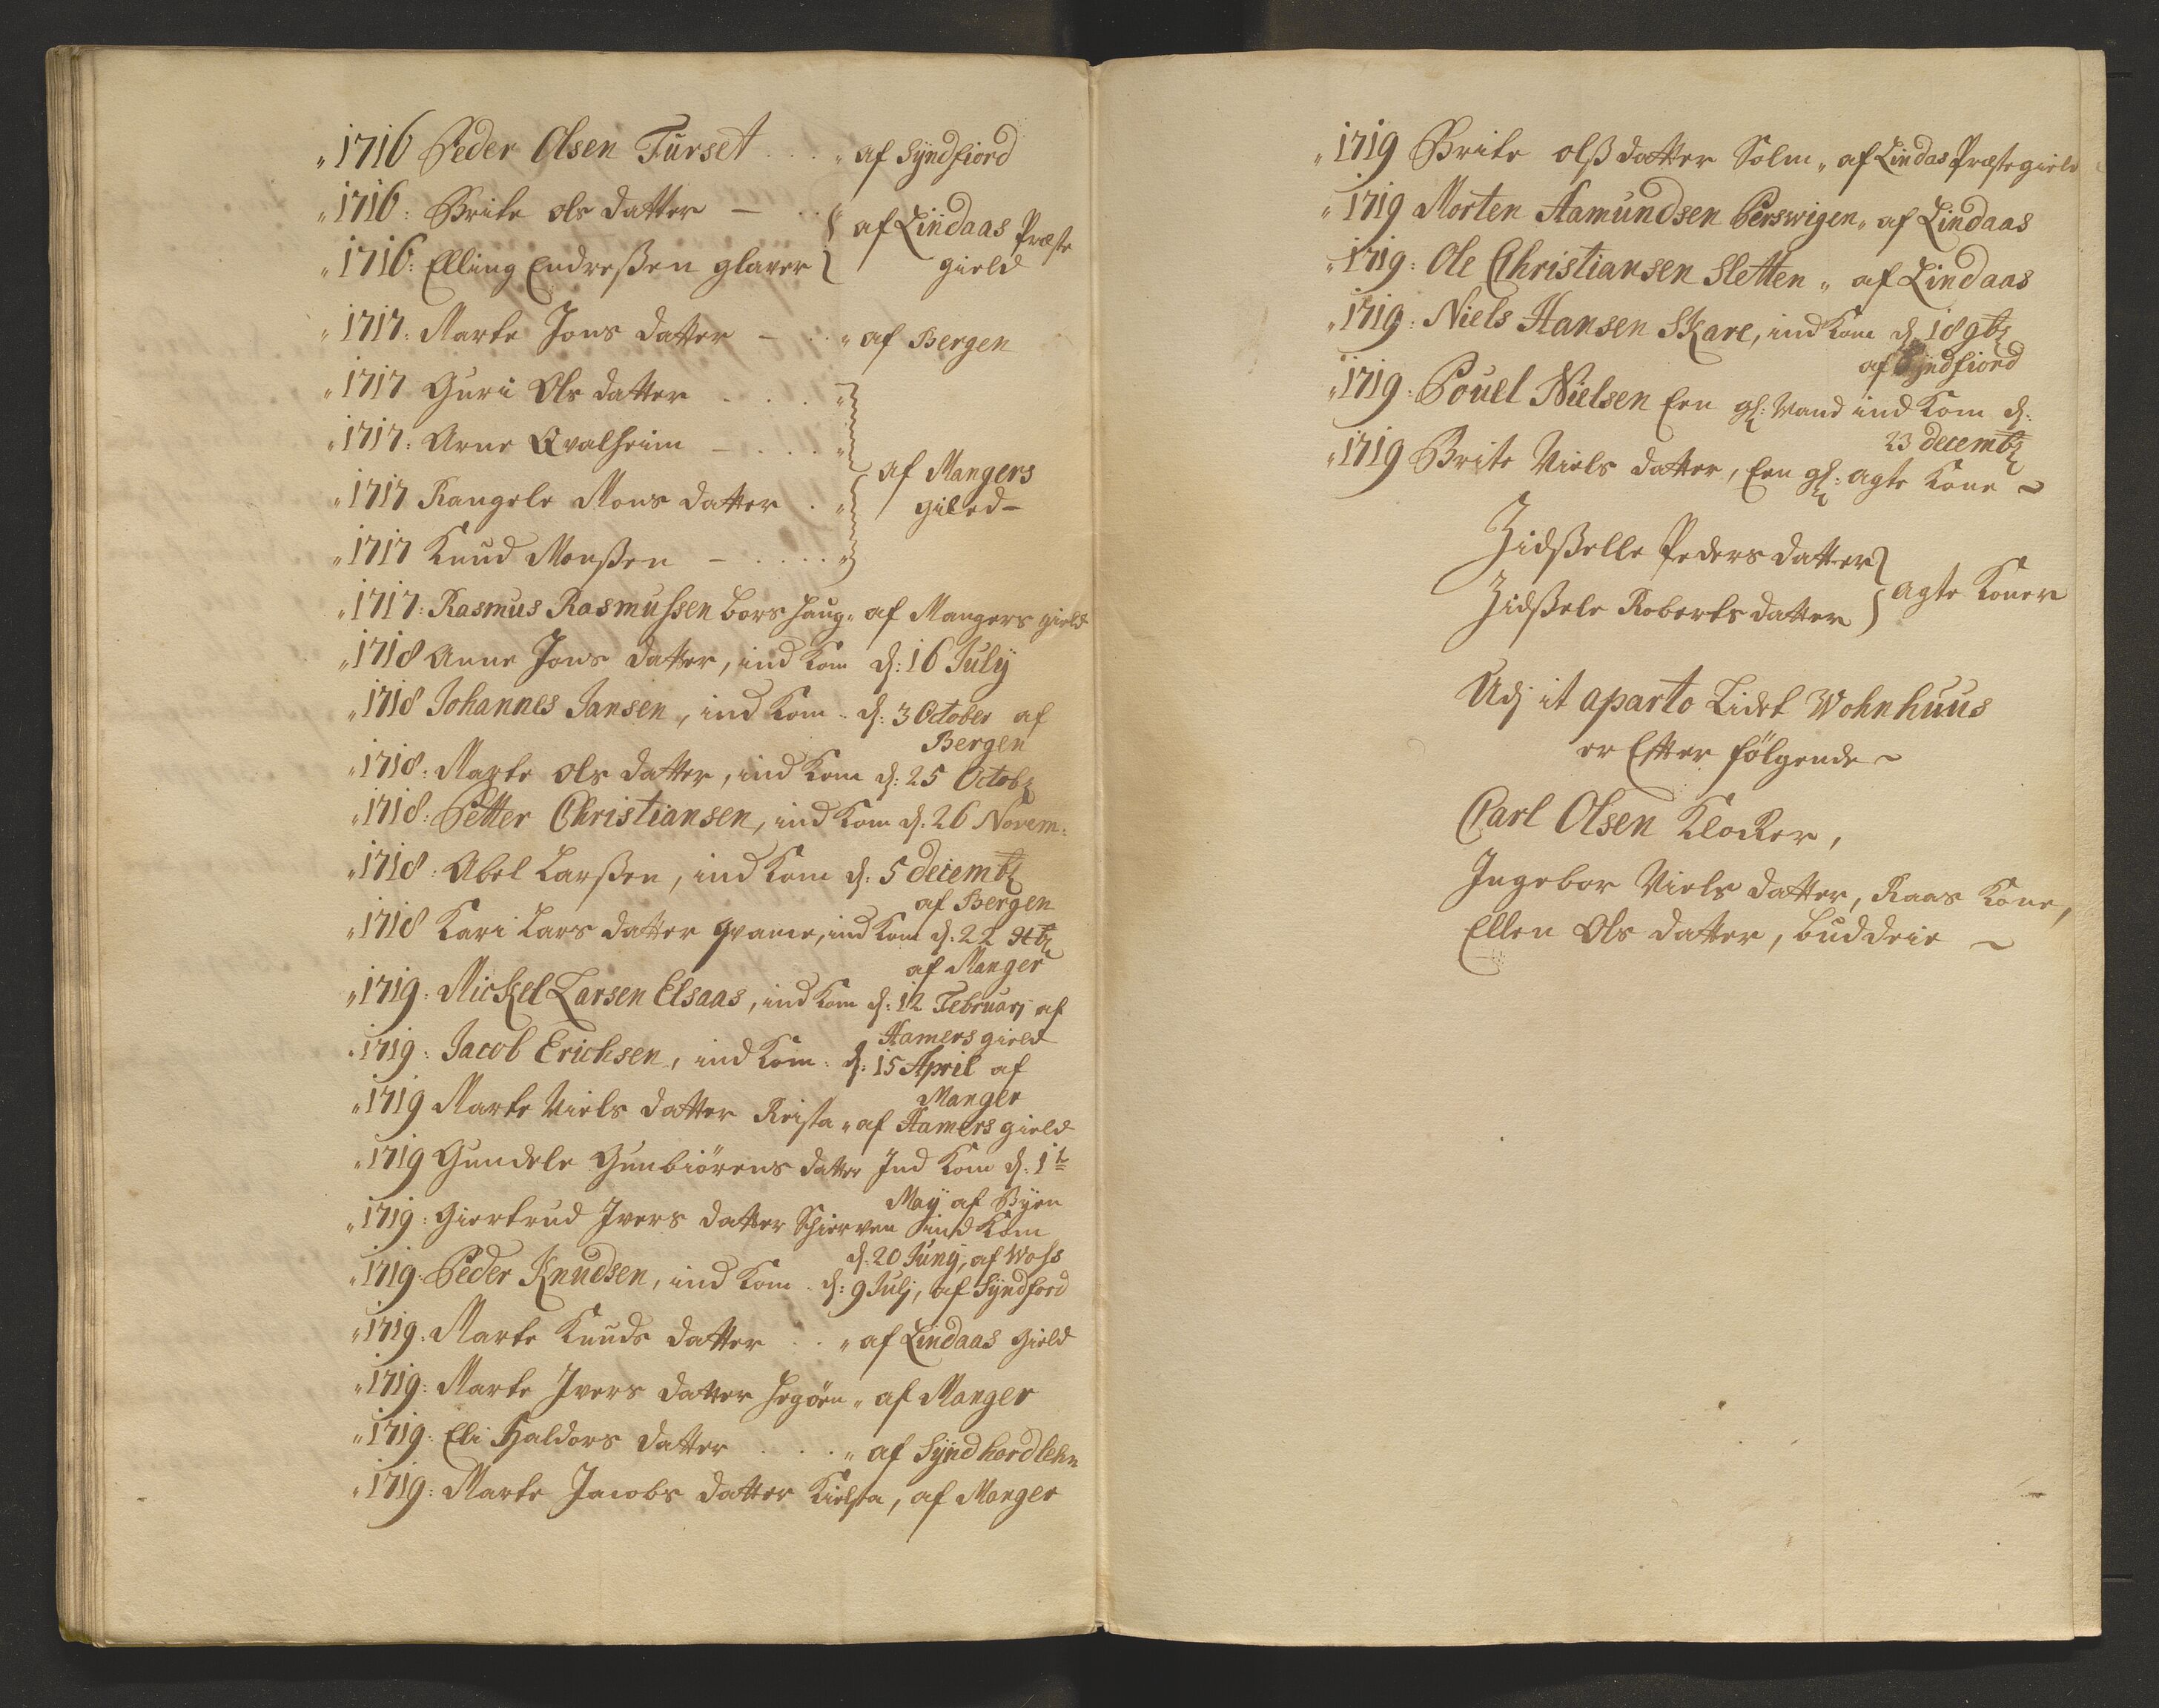 „1716 Peder Olsen Furset . . . „ af Syndfiord
„1716: Brite Ols datter — . . „ af Lindaas Præste
„1716: Elling Endreßen glaver gield
„1717: Marte Jons datter — . . „ af Bergen
„1717 Guri Ols datter . . . . „
„1717: Arne Qvalheim — . . . „
af Mangers
„1717 Rangele Mons datter . „ gield —
„1717 Knud Monßen — . . . . „
„1717: Rasmus Rasmussen Bors haug „ af Mangers gield
„1718 Anne Jons datter, ind Kom d: 16 July
„1718 Johannes Jansen, ind Kom d: 3 October af
Bergen
„1718: Marte Ols datter, ind Kom d: 25 Octob:
„1718: Petter Christiansen, ind Kom d: 26 Novem:
„1718: Abel Larßen, ind Kom d: 5 decemb:
af Bergen
„1718 Kari Lars datter qvame, ind Kom d: 22 Xb:
af Manger
„1719: Mickel Larsen Elsaas, ind Kom d: 12 Februarj af
Hamers gield
„1719: Jacob Erichsen, ind Kom: d: 15 April af
Manger
„1719 Marte Niels datter Rista „ af Hamers gield
„1719 Gundele Gunbiörens datter Ind Kom d: 1t
May af Byen
„1719: Giertrud Ivers datter Schierven ind Kom
d: 20 Junj, af Woss
„1719: Peder Knudsen, ind Kom d: 9 Julj, af Syndford
„1719: Marte Knuds datter . . „ af Lindaas Gield
„1719: Marte Ivers datter Hegöen „ af Manger
„1719: Eli Haldors datter . . . . „ af Synd hordlehn
„1719: Marte Jacobs datter Kielsta, af Manger
„1719 Brite olß datter Solm „ af Lindas Præstegield
„1719 Morten Aamundsen Perswigen „ af Lindaas
„1719: Ole Christiansen Sletten „ af Lindaas
„1719: Niels Hansen Skare, ind Kom d: 18 9b:
af Syndfiord
„1719: Pouel Nielsen Een gl: Mand ind Kom d:
23 decemb:
„1719 Brite Niels datter, Een gl: agte Kone ~
Zidßelle Peders datter
Zidßele Roberts datter agte Koner
Udj it aparto Lidet Wohnhuus
er Efter følgende ~
Carl Olsen Klocker,
Ingebor Niels datter, Raas Kone,
Ellen Ols datter, buddeie ~